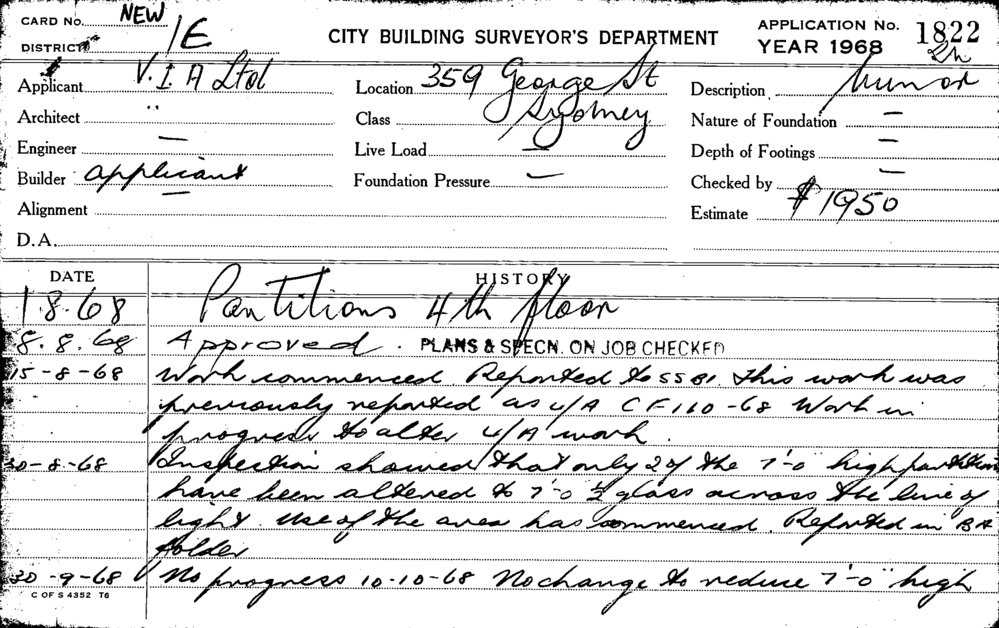 CARD No. NEW
DISTRICT 1E
CITY BUILDING SURVEYOR'S DEPARTMENT
APPLICATION No. 1822
YEAR 1968
Applicant V.I.A Ltd
Location 359 George St
Sydney
Description Minor
Architect "
Class
Nature of Foundation —
Engineer —
Live Load —
Depth of Footings —
Builder applicant
Foundation Pressure —
Checked by —
Alignment —
Estimate $1950
D.A.
DATE HISTORY
1.8.68 Partitions 4th floor
8.8.68 Approved. PLANS & SPECN. ON JOB CHECKED
15-8-68 Work commenced. Reported to SSBI. This work was
previously reported as U/A CF110-68 Work in
progress to alter U/A work.
30-8-68 Inspection showed that only 2 of the 7'-0" high partitions
have been altered to 7'-0 ½ glass across the line of
light. Use of the area has commenced. Reported in BA
folder
30-9-68 No progress 10-10-68 No change to reduce 7'-0" high
C OF S 4352 T6